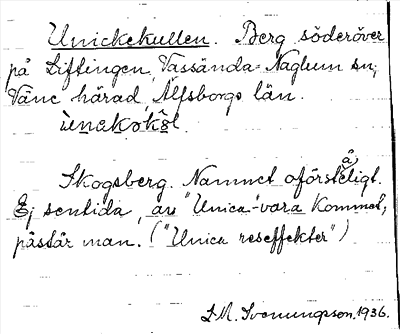 Unickekullen. Berg söderöver
på Liftingen, Vassända-Naglum sn,
Väne härad, Älfsborgs län.
Skogsberg. Namnet oförståeligt.
Ej sentida, av "Unica"-vara kommet,
påstår man. ("Unica reseffekter")
1936.